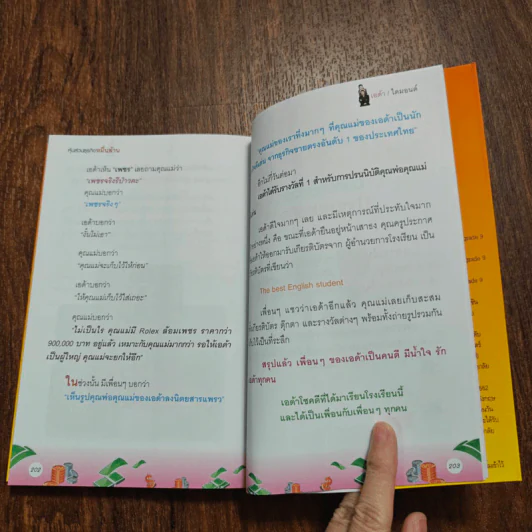 คุณสวนธุรกิจหมื่นล้าน
เอด้าเห็น "เพชร" เลยถามคุณแม่ว่า
"เพชรจริงรึป่าวคะ"
คุณแม่บอกว่า
"เพชรจริง ๆ"
เอด้าบอกว่า
คุณแม่บอกว่า
"คุณแม่จะเก็บไว้ให้ก่อน"
เอด้าบอกว่า
"ให้คุณแม่เก็บไว้ใส่เถอะ"
คุณแม่บอกว่า
"ไม่เป็นไร คุณแม่มี Rolex ล้อมเพชร ราคากว่า
900,000 บาท อยู่แล้ว เหมาะกับคุณแม่มากกว่า รอให้เอด้า
เป็นผู้ใหญ่ คุณแม่จะยกให้อีก"
ในช่วงนั้น มีเพื่อนๆ บอกว่า
"เห็นรูปคุณพ่อคุณแม่ของเอด้าลงนิตยสารแพรว"
202
เอด้า / ไดมอนด์
"คุณแม่ของเราทึ่งมากๆ ที่คุณแม่ของเอด้าเป็นนัก
จากธุรกิจขายตรงอันดับ 1 ของประเทศไทย"
อีกไม่กี่วันต่อมา
เอด้าได้รับรางวัลที่ 1 สำหรับการปรนนิบัติคุณพ่อคุณแม่
เอด้าดีใจมากๆ เลย และมีเหตุการณ์ที่ประทับใจมาก
อย่างหนึ่ง คือ ขณะที่เอด้ายืนอยู่หน้าเสาธง คุณครูประกาศ
ให้ออกมารับเกียรติบัตรจาก ผู้อำนวยการโรงเรียน เป็น
เกียรติบัตรที่เขียนว่า
The best English student
เพื่อนๆ แซวว่าเอด้าอีกแล้ว คุณแม่เลยเก็บสะสม
เกียรติบัตร ตุ๊กตา และรางวัลต่างๆ พร้อมทั้งถ่ายรูปรวมกัน
ไว้เป็นที่ระลึก
สรุปแล้ว เพื่อนๆ ของเอด้าเป็นคนดี มีน้ำใจ รัก
เอด้าทุกคน
เอด้าโชคดีที่ได้มาเรียนโรงเรียนนี้
และได้เป็นเพื่อนกับเพื่อนๆ ทุกคน
203